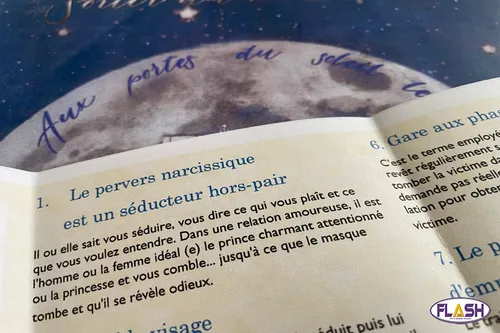 Aux portes du soleil
1. Le pervers narcissique
est un séducteur hors-pair
Il ou elle sait vous séduire, vous dire ce qui vous plaît et ce
que vous voulez entendre. Dans une relation amoureuse, il est
l'homme ou la femme idéal (e) le prince charmant attentionné
ou la princesse et vous comble... jusqu'à ce que le masque
tombe et qu'il se révèle odieux.
visage
séduit puis lui
6. Gare aux
C'est le terme employ
revêt régulièrement s
tomber la victime d
demande pas réell
lation pour obte
victime.
7. Le p
d'em
FLASH